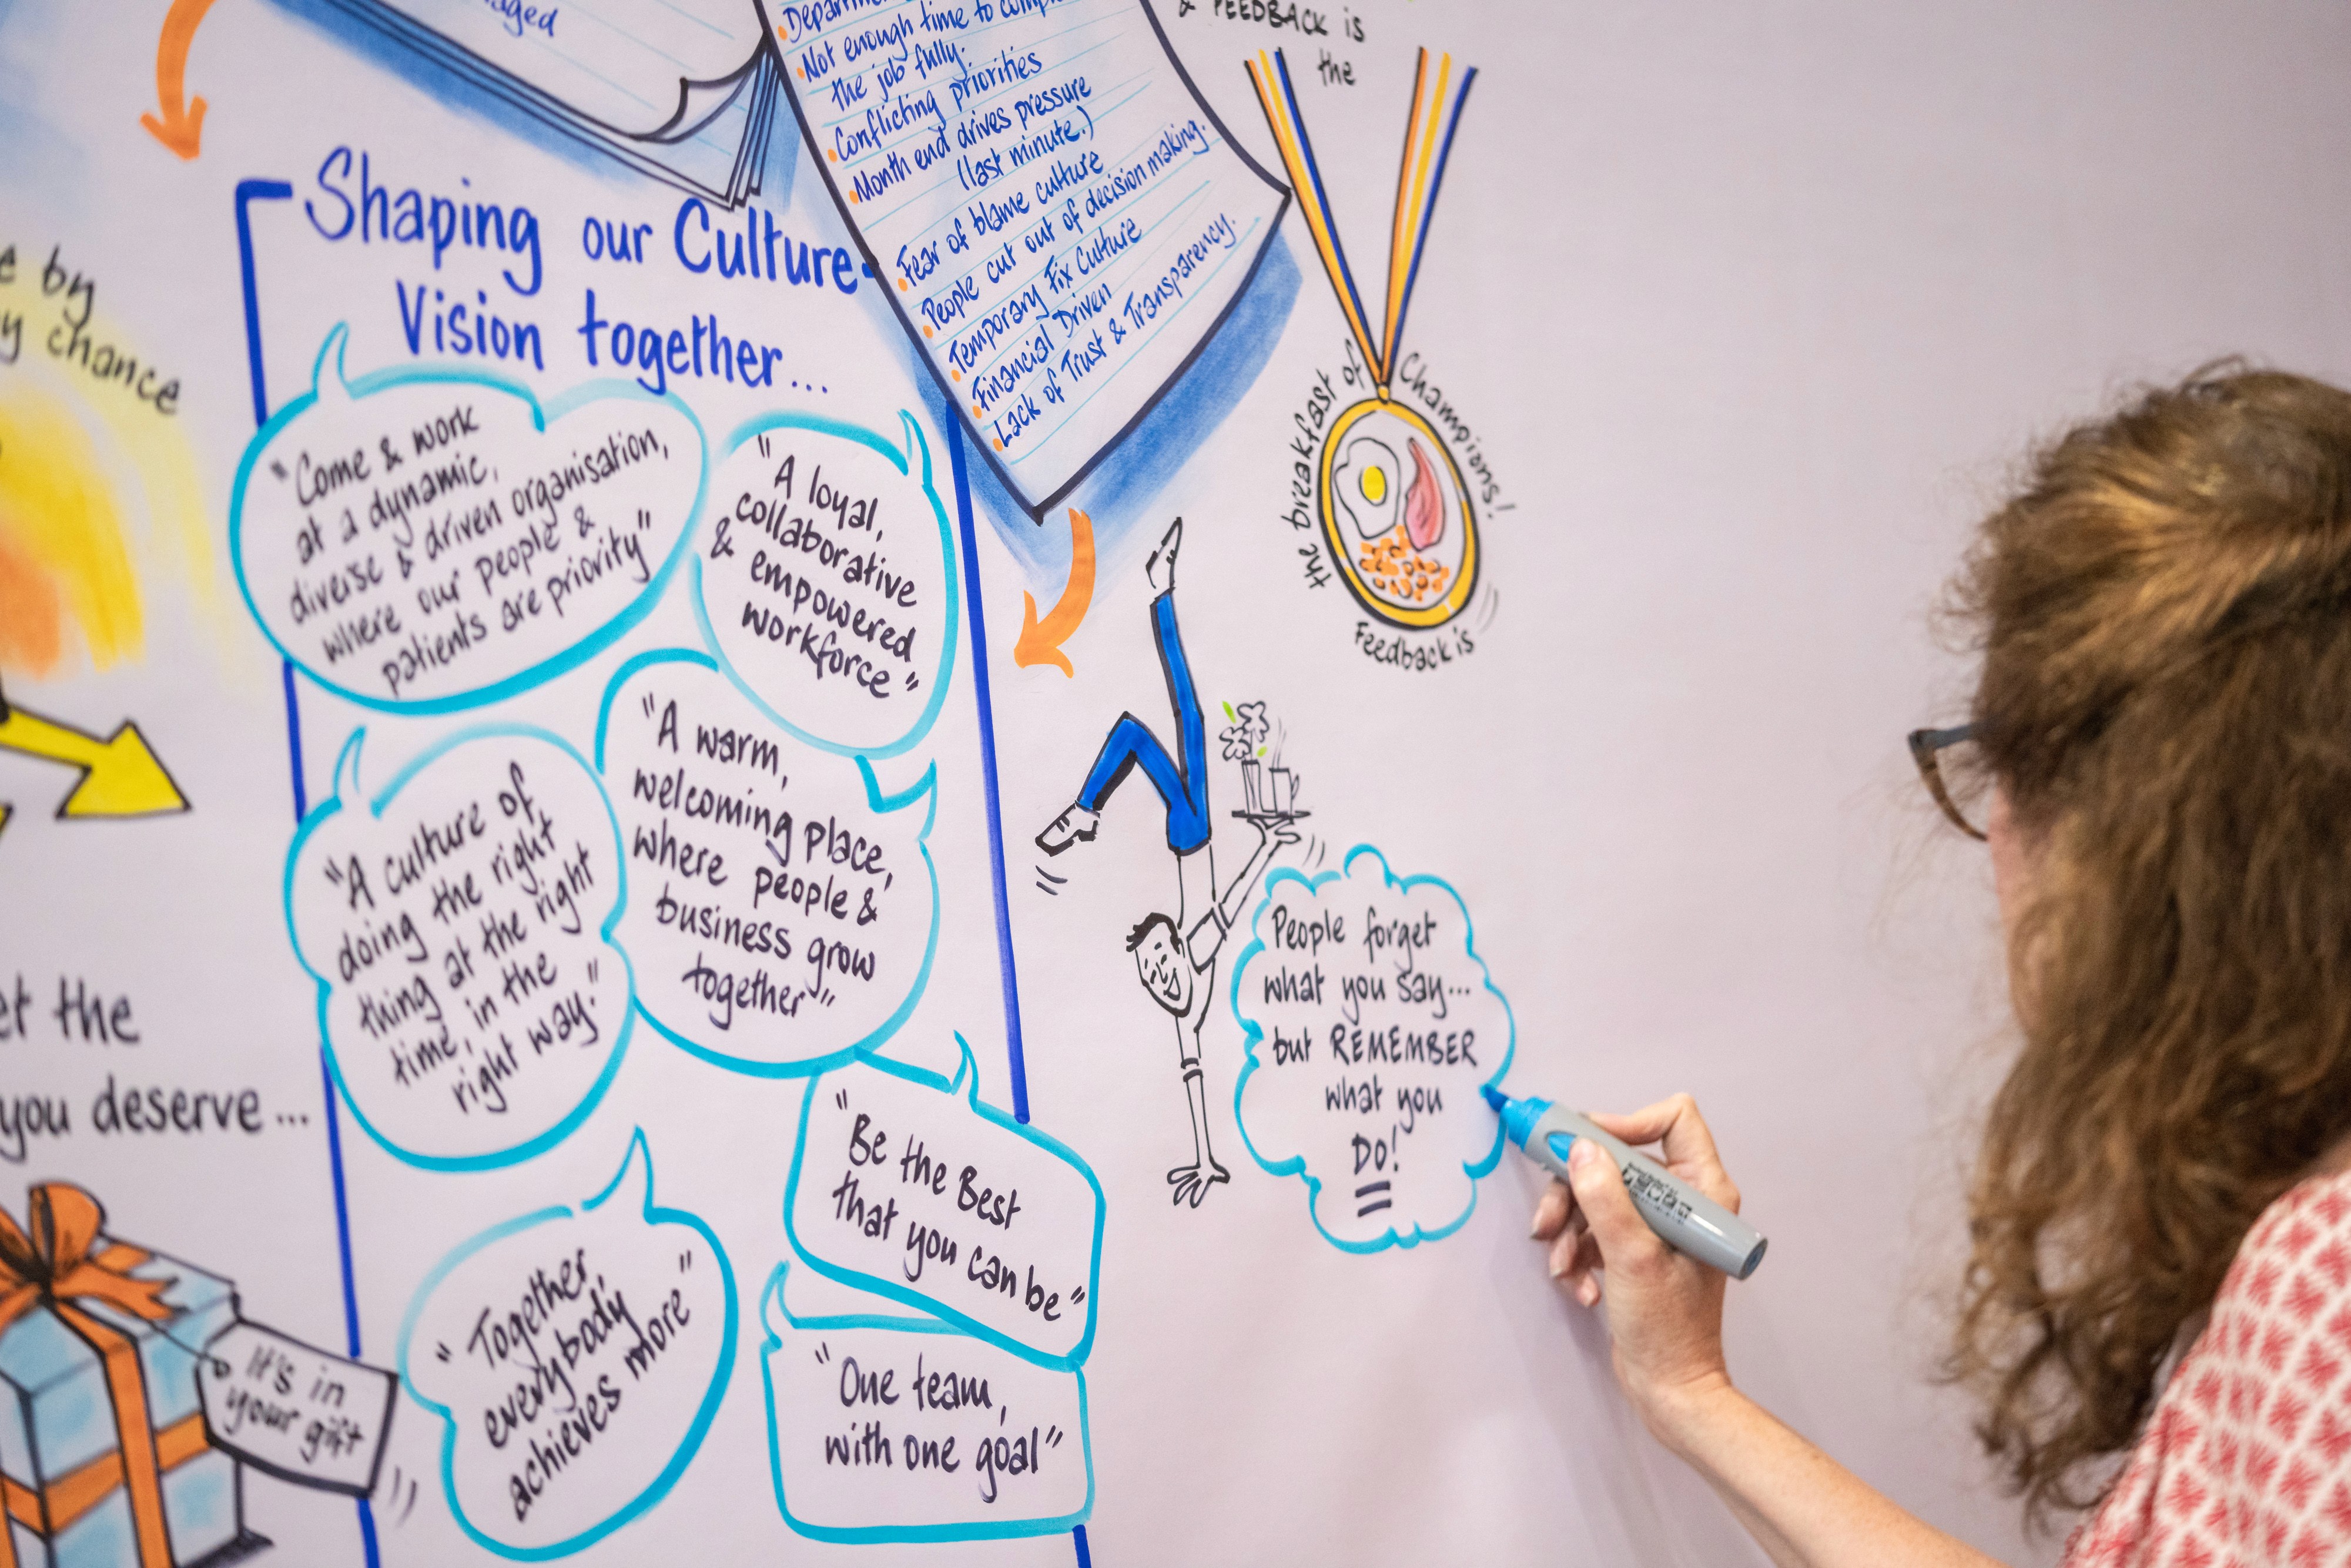 & FEEDBACK is
the
Not enough time to
the job fully.
Conflicting priorities
Month end drives pressure
(last minute.)
Fear of blame culture
People cut out of decision making.
Temporary Fix Culture
Financial Driven
Lack of Trust & Transparency.
the breakfast of Champions!
Feedback is
by
chance
Shaping our Culture
Vision together...
"Come & work
at a dynamic,
diverse & driven organisation,
where our people &
patients are priority"
"A loyal,
collaborative
& empowered
workforce"
"A culture of
doing the right
thing at the right
time, in the
right way."
"A warm,
welcoming place,
where people &
business grow
together"
"Be the Best
that you can be"
"Together
everybody
achieves more"
"One team,
with one goal"
People forget
what you say...
but REMEMBER
what you
DO!
the
you deserve...
It's in
your gift